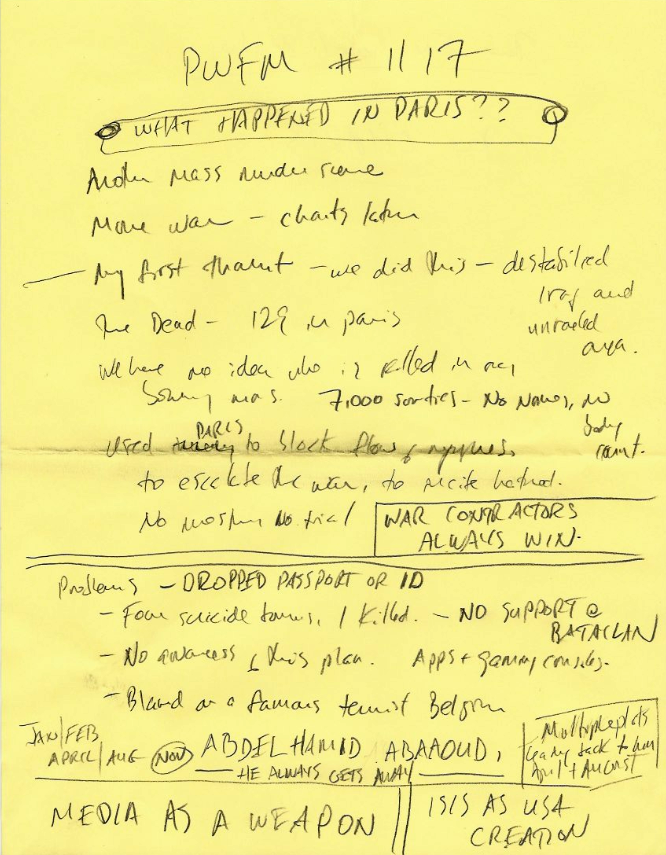 PWFM # 1117
WHAT HAPPENED IN PARIS??
Another mass murder scene
More war - charts later
My first thought - we did this - destabilized
Iraq and
unraveled
area.
The Dead - 129 in Paris
We have no idea who is killed in our
bombing runs. 7,000 sorties - No Names, no
body
count.
PARIS
Used to block flow of refugees,
to escalate the war, to incite hatred.
No mostum No trial
WAR CONTRACTORS
ALWAYS WIN.
Problems - DROPPED PASSPORT OR ID
- Four suicide bombs, 1 killed. - NO SUPPORT @
BATACLAN
- No awareness of this plan. Apps + gaming consoles.
- Blamed on a famous terrorist Belgium
JAN/FEB
APRIL/AUG NOV ABDELHAMID ABAAOUD,
HE ALWAYS GETS AWAY
Multiple plots
leading back to him
April + August
MEDIA AS A WEAPON
ISIS AS USA
CREATION